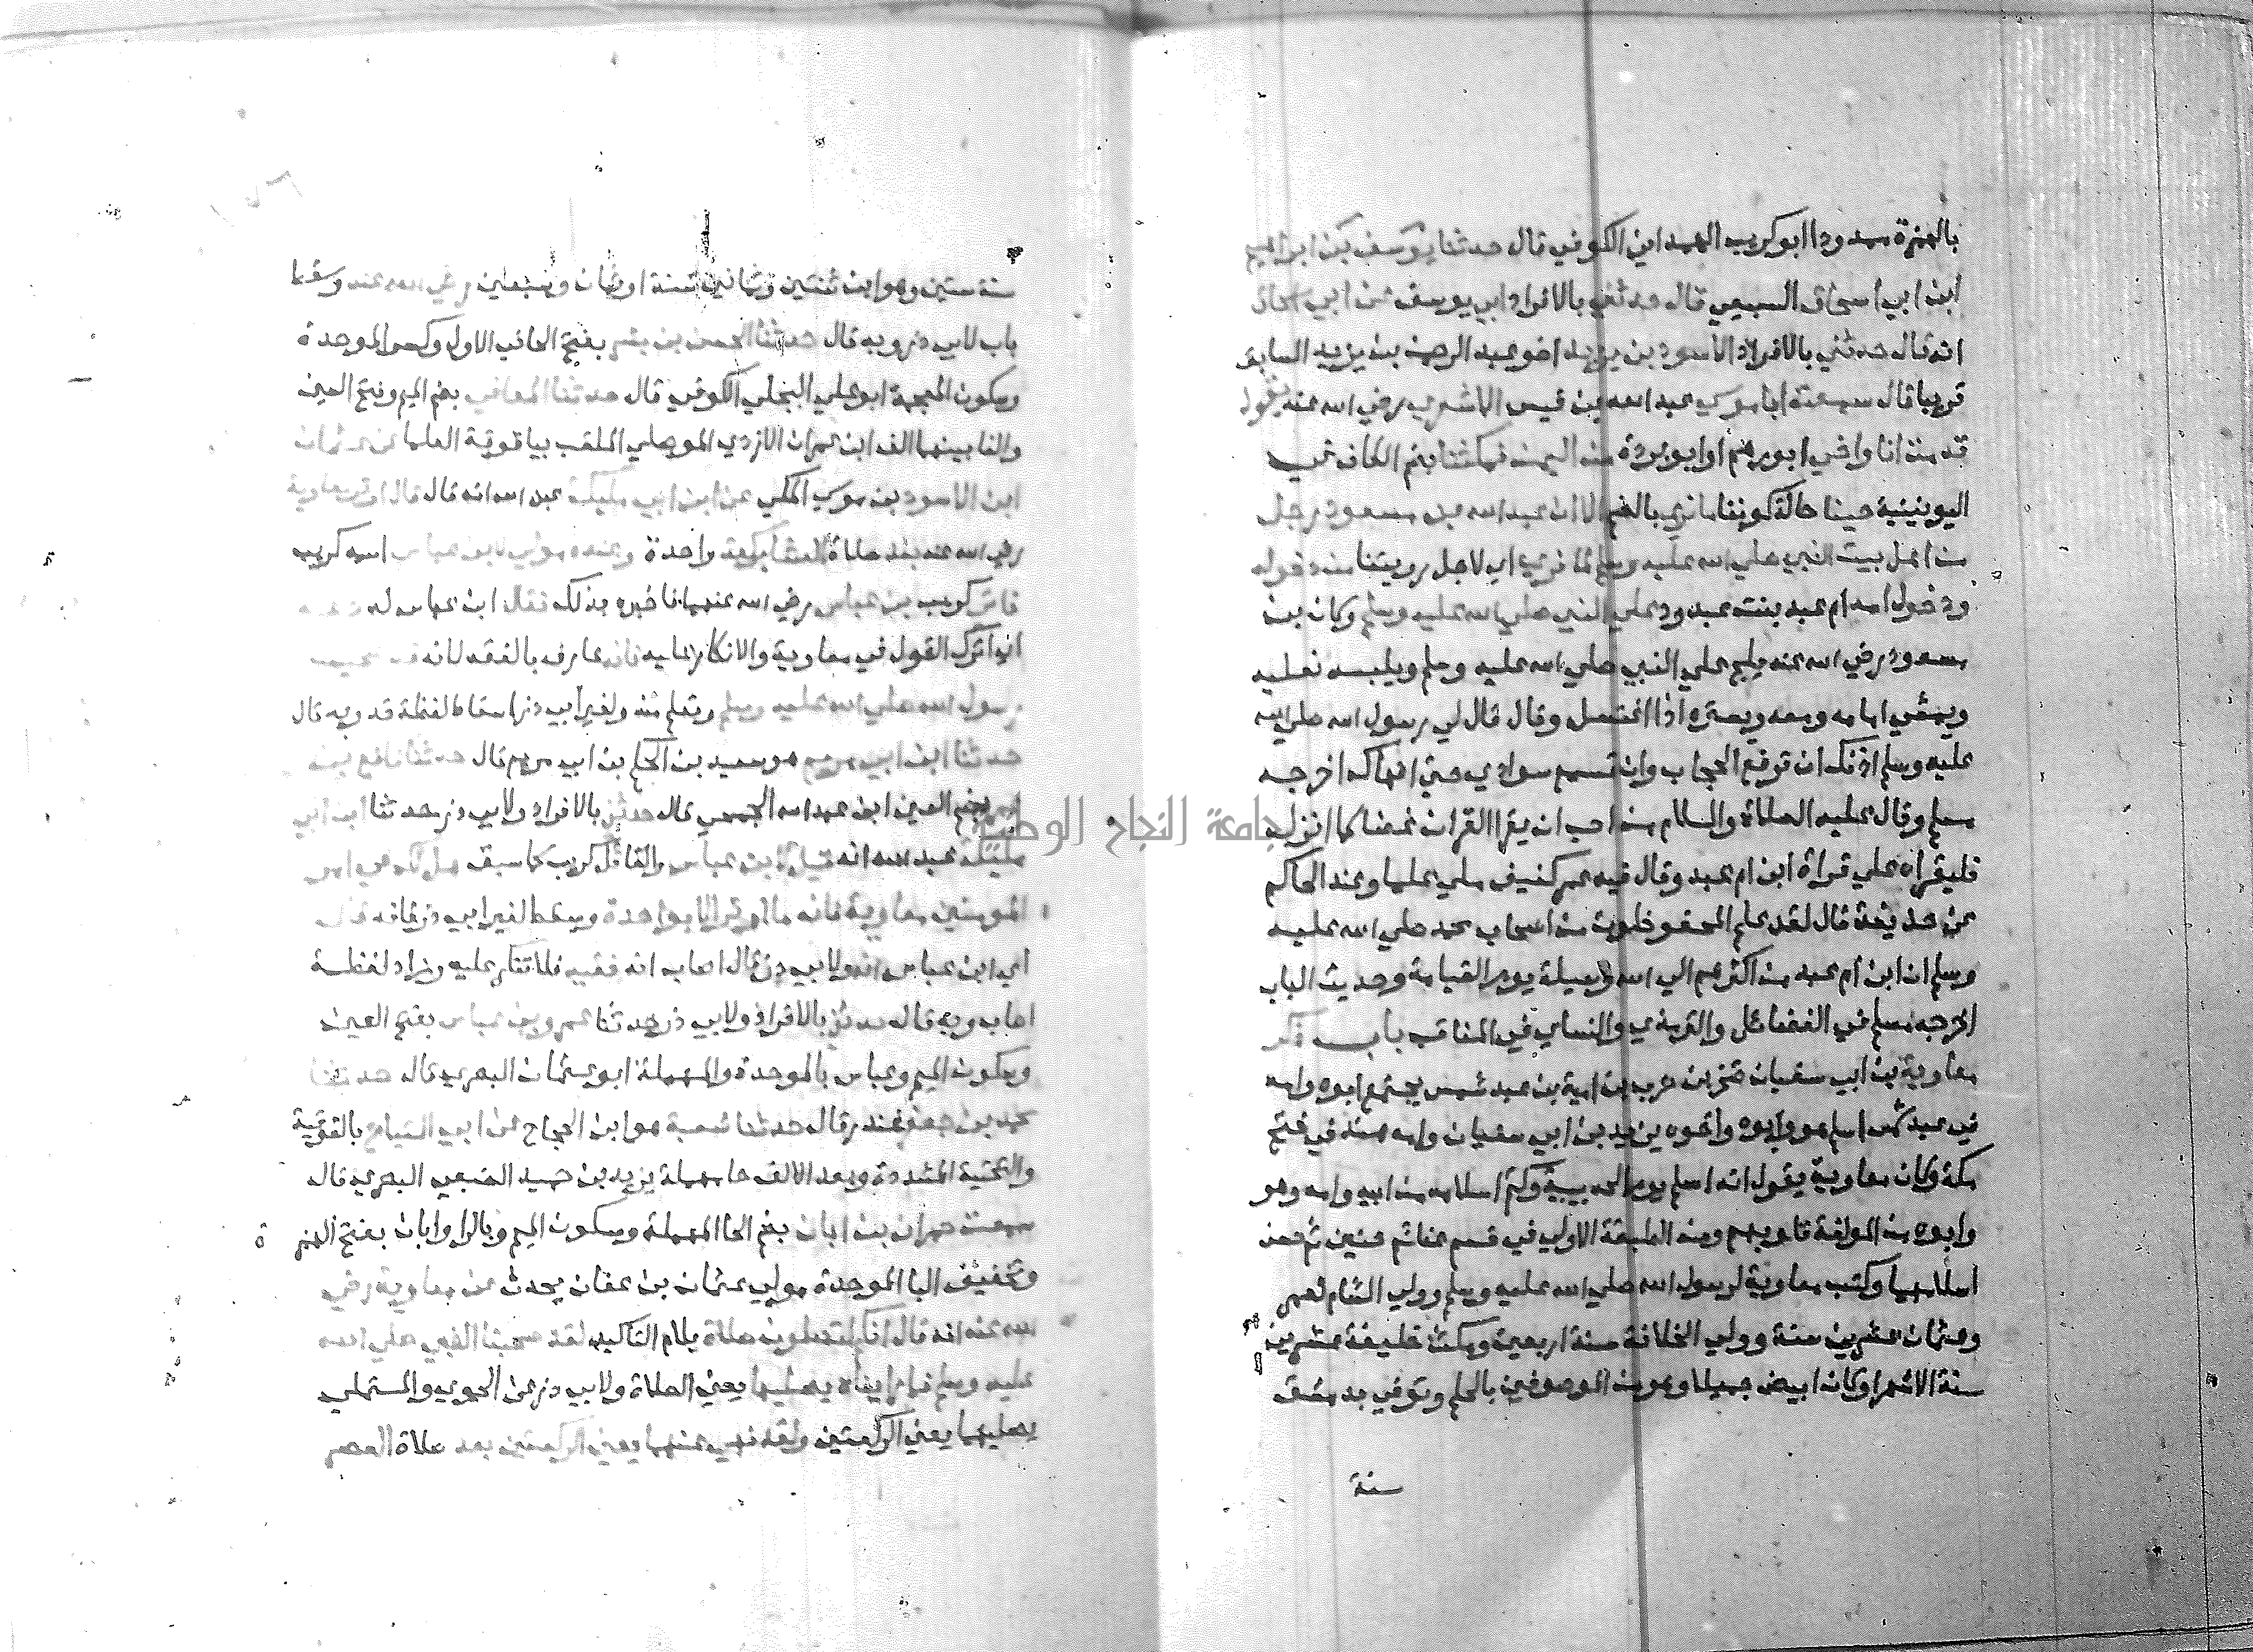 بالهمزة ممدودا ابو كريب الهمداني الكوفي قال حدثنا يوسف بن ابراهيم
ابن ابي اسحاق السبيعي قال حدثني بالافراد ابي يوسف عن ابي اسحاق
انه قال حدثني بالافراد الاسود بن يزيد اخو عبد الرحمن بن يزيد السابق
قريبا قال سمعت ابا موسي عبد الله بن قيس الاشعري رضي الله عنه يقول
قدمت انا واخي ابو رهم او ابو بردة من اليمن فمكثنا بضم الكاف
اليونينية حينا حالة كوننا ما نري بالضم الا ان عبد الله بن مسعود رجل
من اهل بيت النبي صلي الله عليه وسلم لما نري اي لاجل رويتنا من دخوله
ودخول امه ام عبد بنت عبد ود علي النبي صلي الله عليه وسلم وكان بن
مسعود رضي الله عنه يلج علي النبي صلي الله عليه وسلم ويلبسه نعليه
ويمشي امامه ومعه ويستره اذا اغتسل وقال قال لي رسول الله صلي الله
عليه وسلم اذنك ان ترفع الحجاب وان تسمع سوادي حتي انهاك اخرجه
مسلم وقال عليه الصلاة والسلام من احب ان يقرا القران غضا كما انزل
فليقراه علي قراة ابن ام عبد وقال فيه عمر كنيف ملي علما وعند الحاكم
عن حذيفة قال لقد علم المحفوظون من اصحاب محمد صلي الله عليه
وسلم ان ابن ام عبد من اكثرهم الي الله وسيلة يوم القيامة وحديث الباب
اخرجه مسلم في الفضائل والترمذي والنساي في المناقب باب ذكر
معاوية بن ابي سفيان صخر بن حرب بن امية بن عبد شمس يجتمع ابوه وامه
في عبد شمس اسلم هو وابوه واخوه يزيد بن ابي سفيان وامه هند في فتح
مكة وكان معاوية يقول انه اسلم يوم الحديبية وكتم اسلامه من ابيه وامه وهو
وابوه من المولفة قلوبهم ومن الطبقة الاولي في قسم غنائم حنين ثم حسن
اسلامهما وكتب معاوية لرسول الله صلي الله عليه وسلم وولي الشام لعمر
وعثمان عشرين سنة وولي الخلافة سنة اربعين ومكث خليفة عشرين
سنة الا شهرا وكان ابيض جميلا وهو من الموصوفين بالحلم وتوفي بدمشق
سنة
سنة ستين وهو ابن ثنتين وثمانين سنة او ثمان وسبعين رضي الله عنه وسقط
باب لابي ذر وبه قال حدثنا الحسن بن بشر بفتح الحا في الاول وكسر الموحدة
وسكون المعجمة ابو علي البجلي الكوفي قال حدثنا المعافي بضم الميم وفتح العين
والفا بينهما الف ابن عمران الازدي الموصلي الملقب بياقوتة العلما عن عثمان
ابن الاسود بن موسي المكي عن ابن ابي مليكة عبد الله انه قال قال اوتر معاوية
رضي الله عنه بعد صلاة العشا بركعة واحدة وعنده مولي لابن عباس اسمه كريب
فاتي كريب بن عباس رضي الله عنهما فاخبره بذلك فقال ابن عباس له
اي اترك القول في معاوية والانكار عليه فانه عارف بالفقه لانه قد صحب
رسول الله صلي الله عليه وسلم وتعلم منه ولغير ابي ذر اسقاط لفظة قد وبه قال
حدثنا ابن ابي مريم هو سعيد بن الحكم بن ابي مريم قال حدثنا نافع بن
عمر بضم العين ابن عبد الله الجمحي قال حدثني بالافراد ولابي ذر حدثنا ابن ابي
مليكة عبد الله انه قيل لابن عباس والقائل كريب كما سبق هل لك في امير
المومنين معاوية فانه ما اوتر الا بواحدة وسقط لغير ابي ذر فانه قال
اي ابن عباس انه ولابي ذر قال اصاب انه فقيه فلا تنكر عليه وزاد لفظة
اصاب وبه قال حدثني بالافراد ولابي ذر حدثنا عمرو بن عباس بفتح العين
وسكون الميم وعباس بالموحدة والمهملة ابو عثمان البصري قال حدثنا
محمد بن جعفر غندر قال حدثنا شعبة هو ابن الحجاج عن ابي التياح بالفوقية
والتحتية المشددة وبعد الالف حا مهملة يزيد بن حميد الضبعي البصري قال
سمعت حمران بن ابان بضم الحا المهملة وسكون الميم وبالرا وابان بفتح الهمزة
وتخفيف البا الموحدة مولي عثمان بن عفان يحدث عن معاوية رضي
الله عنه انه قال انكم لتصلون صلاة بلام التاكيد لقد صحبنا النبي صلي الله
عليه وسلم فما رايناه يصليها يعني الصلاة ولابي ذر عن الحموي والمستملي
يصليهما يعني الركعتين ولقد نهي عنهما يعني الركعتين بعد صلاة العصر
جامعة النجاح الوطنية